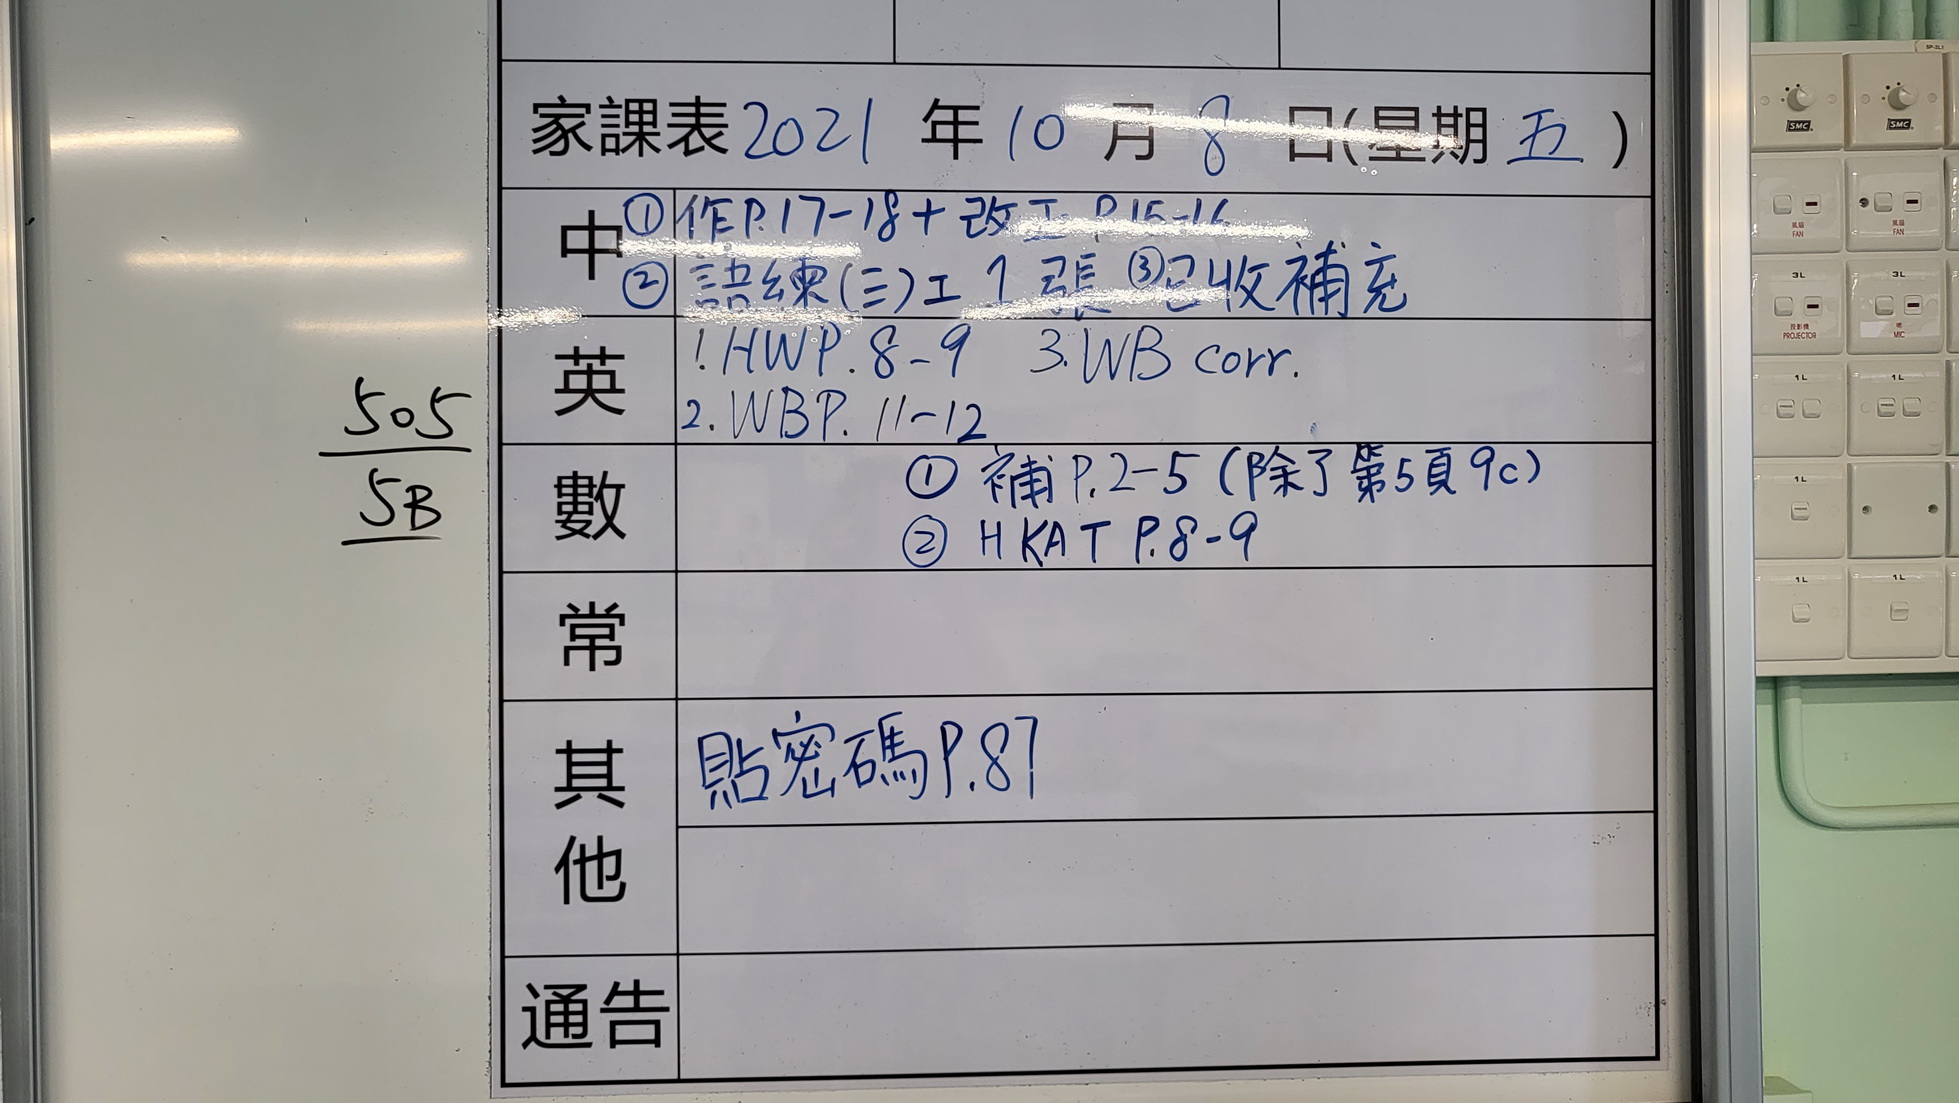 家課表2021年10月8日(星期五)
中
①作P.17-18+改工P.15-16
②語練(三)工1張 ③已收補充
英
1.HWP.8-9 3.WB corr.
2.WBP.11-12
505
5B
數
①補P.2-5(除了第5頁9c)
②HKAT P.8-9
常
其他
貼密碼P.87
通告
SMC
SMC
風扇
FAN
風扇
FAN
3L
3L
投影機
PROJECTOR
MIC
1L
1L
1L
1L
1L